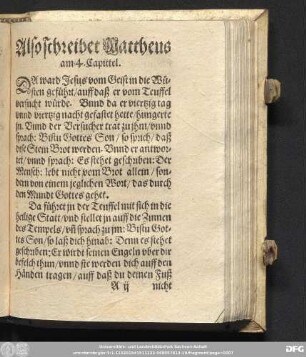 Also schreibet Mattheus
am 4. Capittel.
DA ward Jesus vom Geist in die Wü-
sten geführt/ auff daß er vom Teuffel
versucht würde. Vnnd da er viertzig tag
vnnd viertzig nacht gefastet hette/ hungerte
jn. Vnnd der Versucher trat zu jhm/ vnnd
sprach: Bistu Gottes Son/ so sprich/ daß
diese Stein Brot werden. Vnnd er antwor-
tet/ vnnd sprach: Es stehet geschriben: Der
Mensch lebt nicht vom Brot allein/ son-
dern von einem jeglichen Wort/ das durch
den Mundt Gottes gehet.
Da führet jn der Teuffel mit sich in die
heilige Statt/ vnd stellet jn auff die Zinnen
des Tempels/ vñ sprach zu jm: Bistu Got-
tes Son/ so laß dich hinab: Denn es stehet
geschriben: Er wirdt seinen Engeln vber dir
befelch thun/ vnnd sie werden dich auff den
Händen tragen/ auff daß du deinen Fuß
A ij nicht